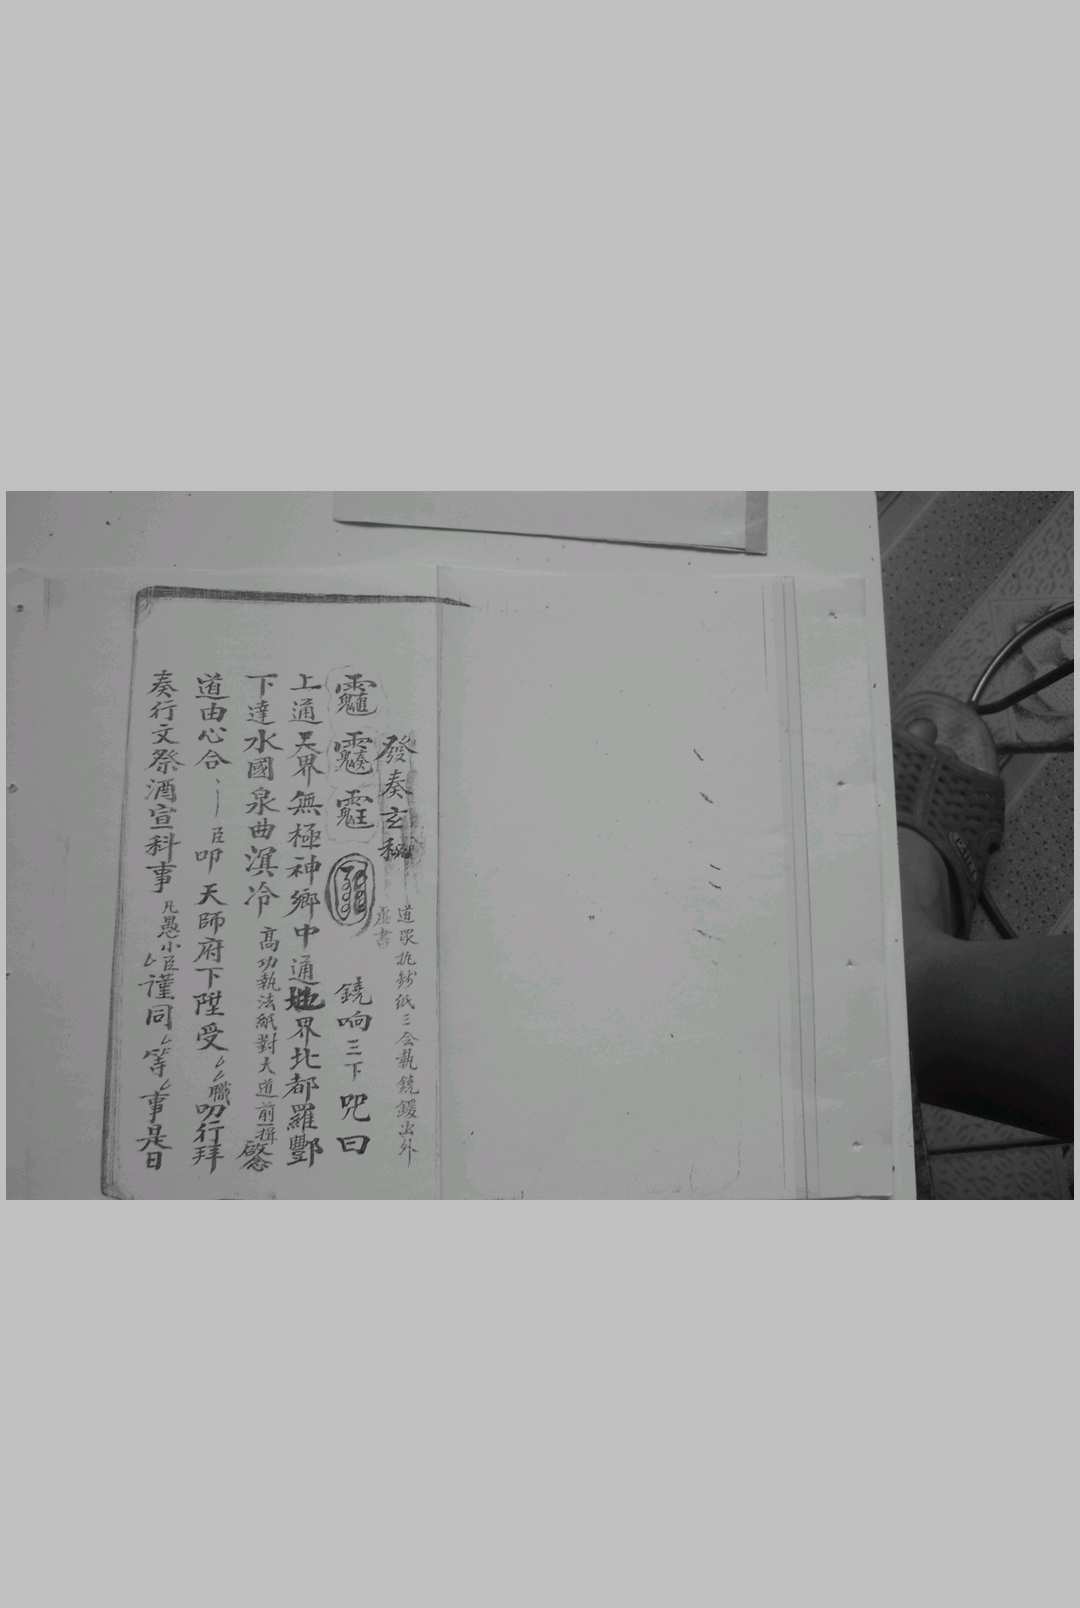 發奏玄秘
道眾執鈔紙三会執鐃鍰出外
虛書
鐃响三下咒曰
上通昊界無極神鄉中通地界北都羅酆
下達水國泉曲溟泠高功執法紙對大道前一揖啟念
道由心合臣叩天師府下陞受職叨行拜
奏行文祭酒宣科事凡愚小臣謹同等事是日